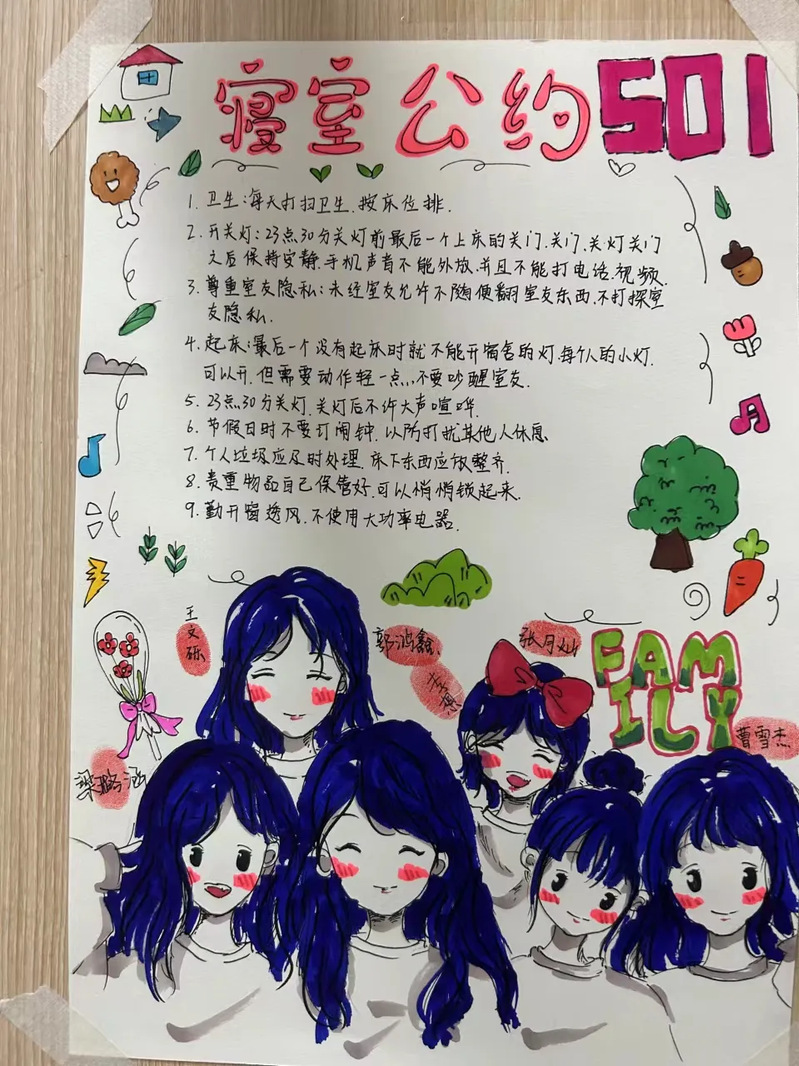 寝室公约 501
1. 卫生:每天打扫卫生.按床位排.
2. 开关灯:23点30分关灯前最后一个上床的关门.关门.关灯关门
之后保持安静.手机声音不能外放.并且不能打电话.视频.
3. 尊重室友隐私:未经室友允许不随便翻室友东西.不打探室
友隐私.
4. 起床:最后一个没有起床时就不能开宿舍的灯.每个人的小灯.
可以开.但需要动作轻一点,不要吵醒室友.
5. 23点30分关灯.关灯后不许大声喧哗.
6. 节假日时不要订闹钟.以防打扰其他人休息
7. 个人垃圾应及时处理.床下东西应放整齐.
8. 贵重物品自己保管好.可以悄悄锁起来.
9. 勤开窗透风.不使用大功率电器.
王文砾
郭鸿鑫
张月
FAM
ILY
曹雪杰
梁璐涵